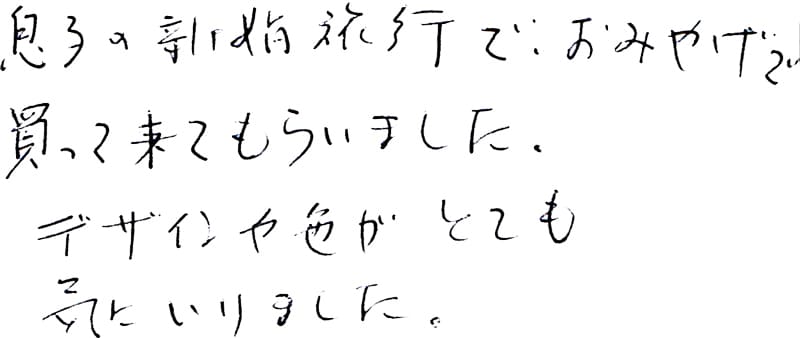 息子の新婚旅行で、おみやげで
買って来てもらいました。
デザインや色がとても
気にいりました。